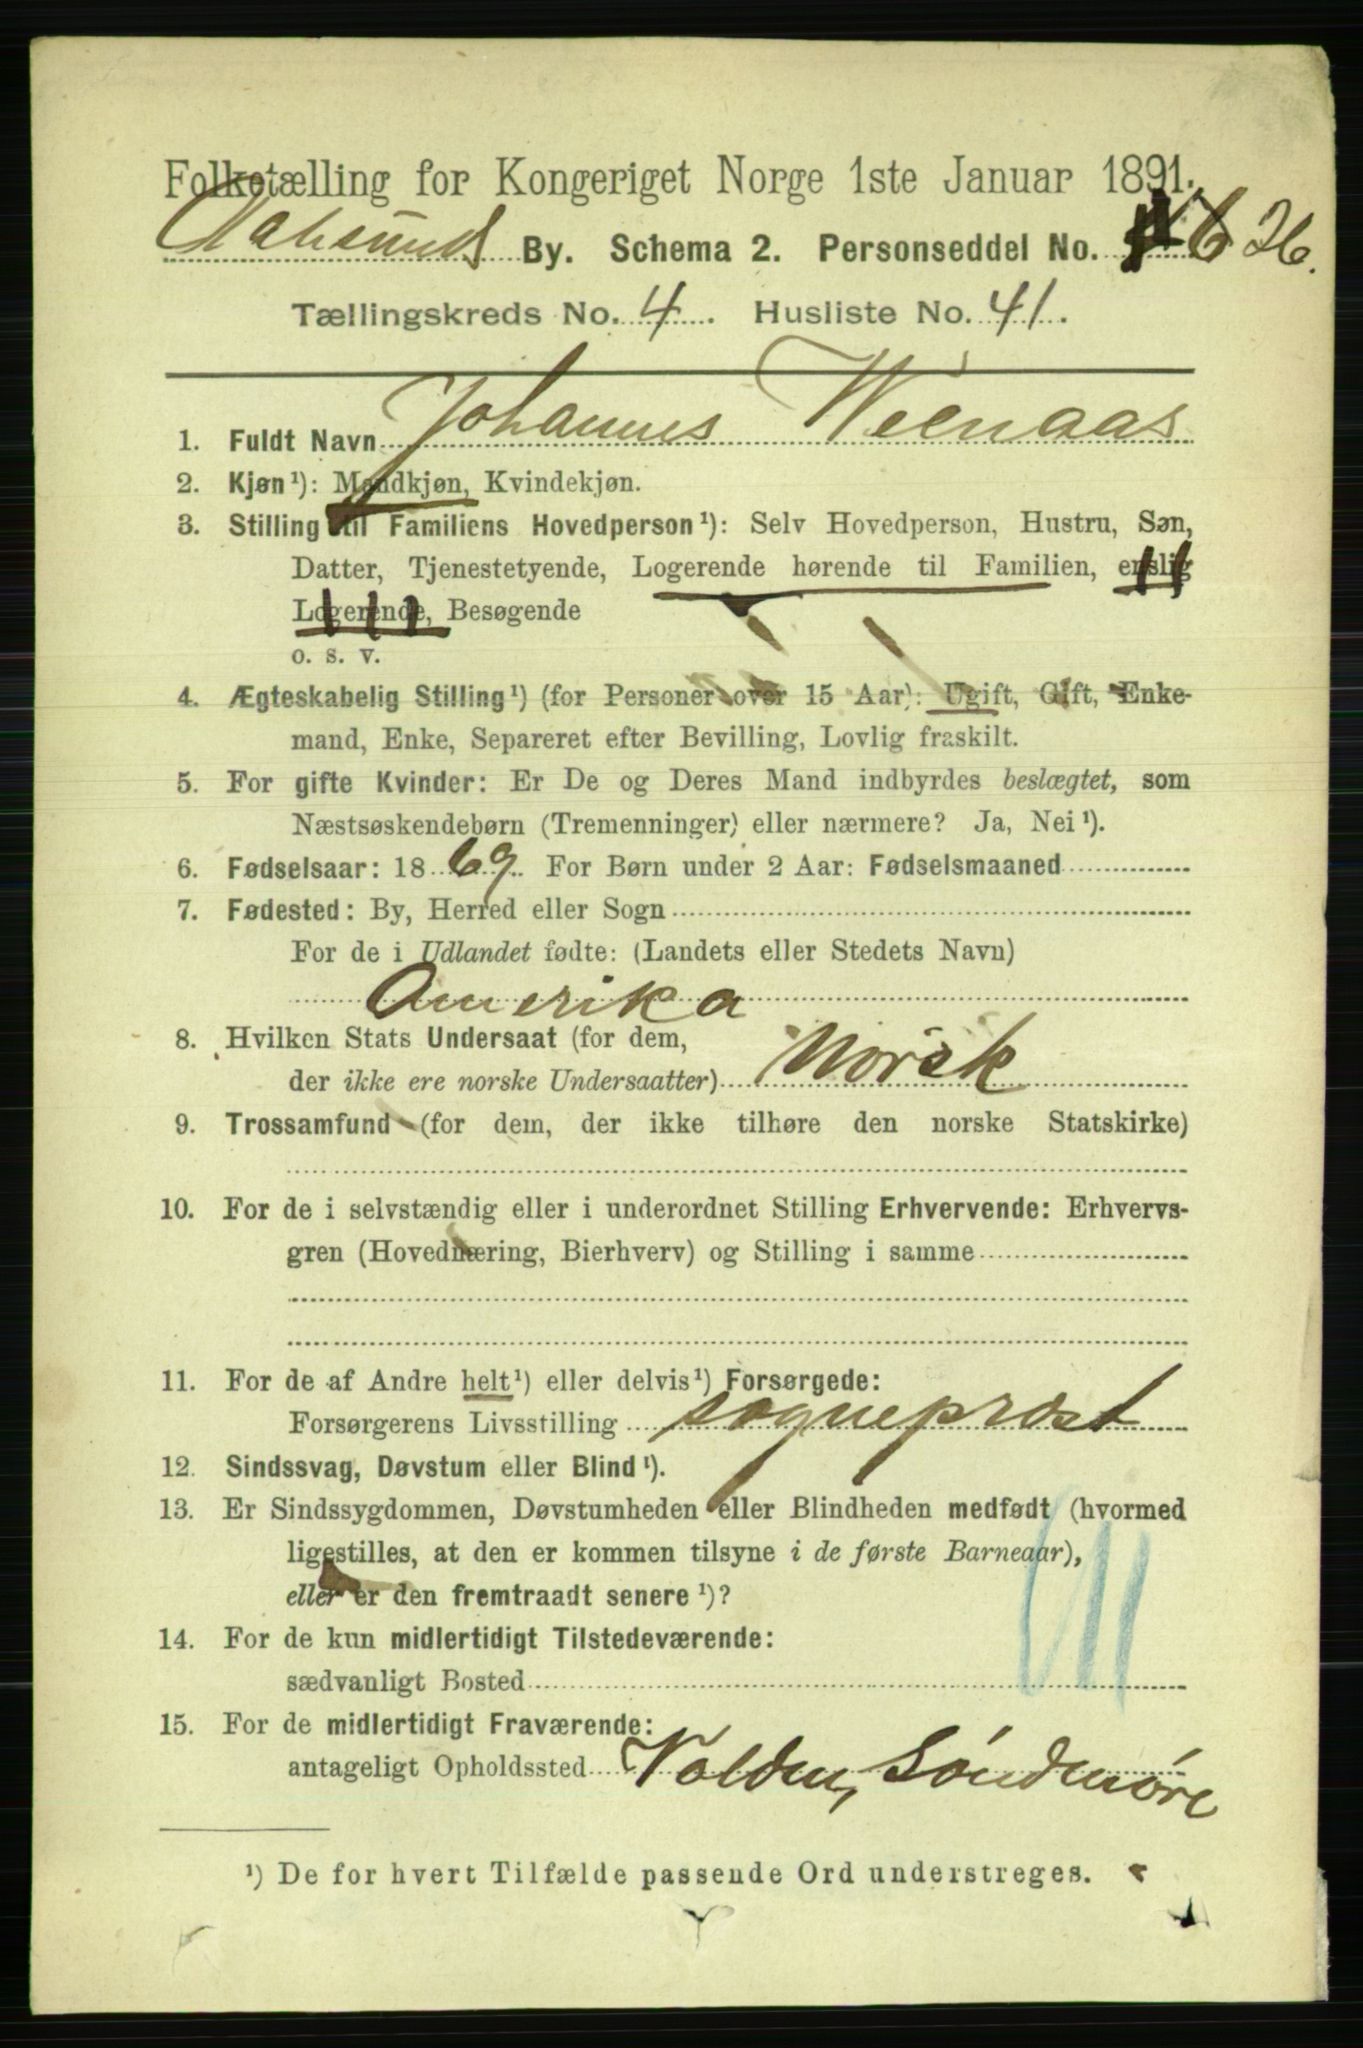 Folketælling for Kongeriget Norge 1ste Januar 1891.
Aalesunds By. Schema 2. Personseddel No. 6 26.
Tællingskreds No. 4. Husliste No. 41.
1. Fuldt Navn Johannes Weenaas
2. Kjøn¹): Mandkjøn, Kvindekjøn.
3. Stilling til Familiens Hovedperson¹): Selv Hovedperson, Hustru, Søn,
Datter, Tjenestetyende, Logerende hørende til Familien, enslig
Logerende, Besøgende
o. s. v.
4. Ægteskabelig Stilling¹) (for Personer over 15 Aar): Ugift, Gift, Enke-
mand, Enke, Separeret efter Bevilling, Lovlig fraskilt.
5. For gifte Kvinder: Er De og Deres Mand indbyrdes beslægtet, som
Næstsøskendebørn (Tremenninger) eller nærmere? Ja, Nei¹).
6. Fødselsaar: 1869. For Børn under 2 Aar: Fødselsmaaned
7. Fødested: By, Herred eller Sogn
For de i Udlandet fødte: (Landets eller Stedets Navn)
Amerika
8. Hvilken Stats Undersaat (for dem,
der ikke ere norske Undersaatter) Norsk
9. Trossamfund (for dem, der ikke tilhøre den norske Statskirke)
10. For de i selvstændig eller i underordnet Stilling Erhvervende: Erhvervs-
gren (Hovednæring, Bierhverv) og Stilling i samme
11. For de af Andre helt¹) eller delvis¹) Forsørgede:
Forsørgerens Livsstilling sogneprest
12. Sindssvag, Døvstum eller Blind¹).
13. Er Sindssygdommen, Døvstumheden eller Blindheden medfødt (hvormed
ligestilles, at den er kommen tilsyne i de første Barneaar),
eller er den fremtraadt senere¹)?
14. For de kun midlertidigt Tilstedeværende:
sædvanligt Bosted
15. For de midlertidigt Fraværende:
antageligt Opholdssted Volden, Søndmøre
¹) De for hvert Tilfælde passende Ord understreges.